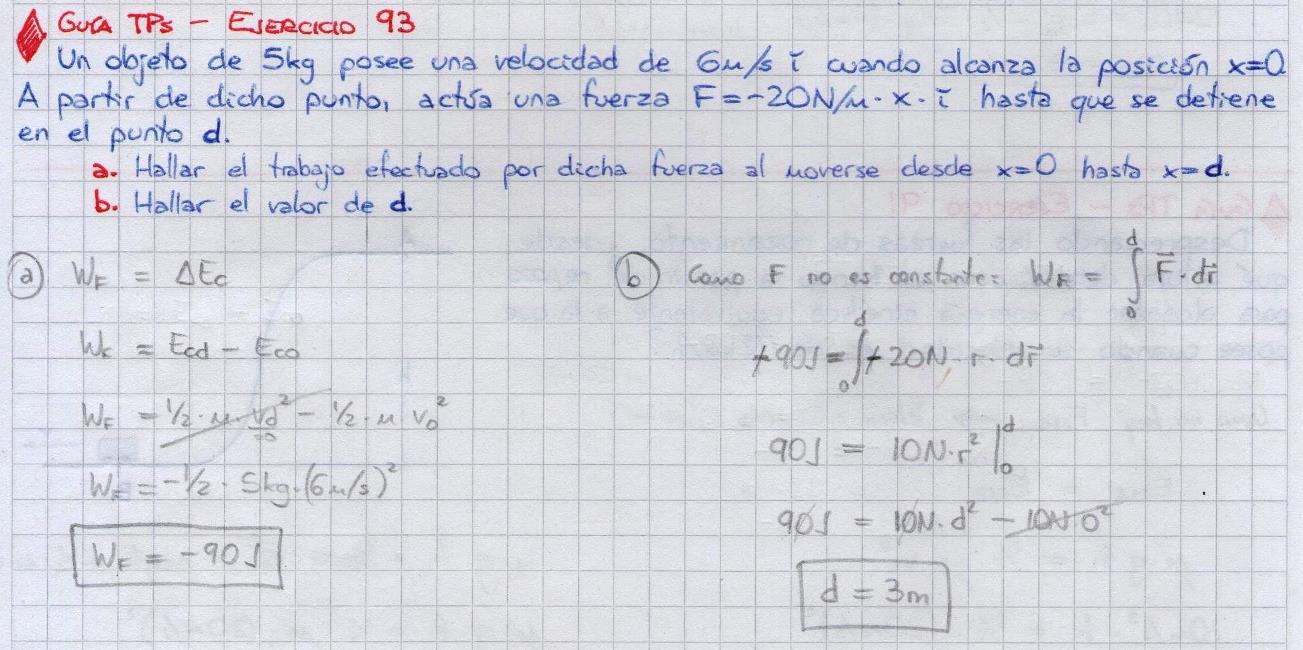 GUÍA TPs - EJERCICIO 93
Un objeto de 5kg posee una velocidad de 6m/s ĭ cuando alcanza la posición x=0
A partir de dicho punto, actúa una fuerza F=-20N/m·x·ĭ hasta que se detiene
en el punto d.
a. Hallar el trabajo efectuado por dicha fuerza al moverse desde x=0 hasta x=d.
b. Hallar el valor de d.
a) W_F = ΔEc
W_F = Ecd - Eco
W_F = 1/2·m·vd² - 1/2·m·vo²
=0
W_F = -1/2 · 5kg·(6m/s)²
W_F = -90J
b) Como F no es constante: W_F = ∫₀ᵈ F⃗·dr⃗
+90J = ∫₀ᵈ +20N·r·dr⃗
90J = 10N·r² |₀ᵈ
90J = 10N·d² - 10N·0²
d = 3m